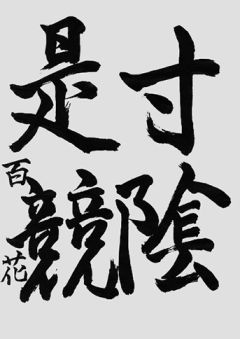 寸陰
是競
百花